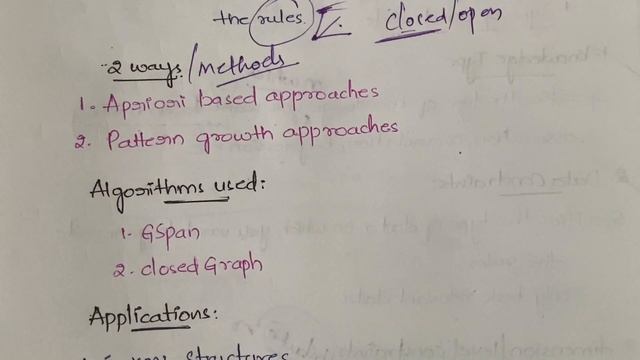 the rules. closed/open
2 ways/methods
1. Apriori based approaches
2. Pattern growth approaches
Algorithms used:
1. GSpan
2. closed Graph
Applications:
structures